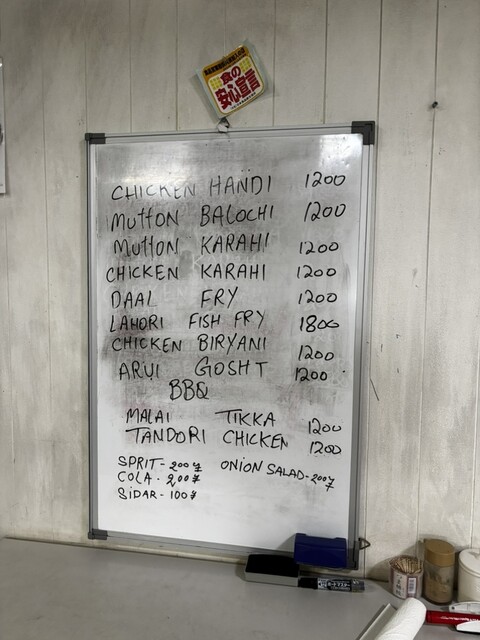 食の
安心宣言
CHICKEN HANDI 1200
MUTTON BALOCHI 1200
MUTTON KARAHI 1200
CHICKEN KARAHI 1200
DAAL FRY 1200
LAHORI FISH FRY 1800
CHICKEN BIRYANI 1200
ARUI GOSHT 1200
BBQ
MALAI TIKKA 1200
TANDORI CHICKEN 1200
SPRIT - 200¥ ONION SALAD - 200¥
COLA - 200¥
SIDAR - 100¥